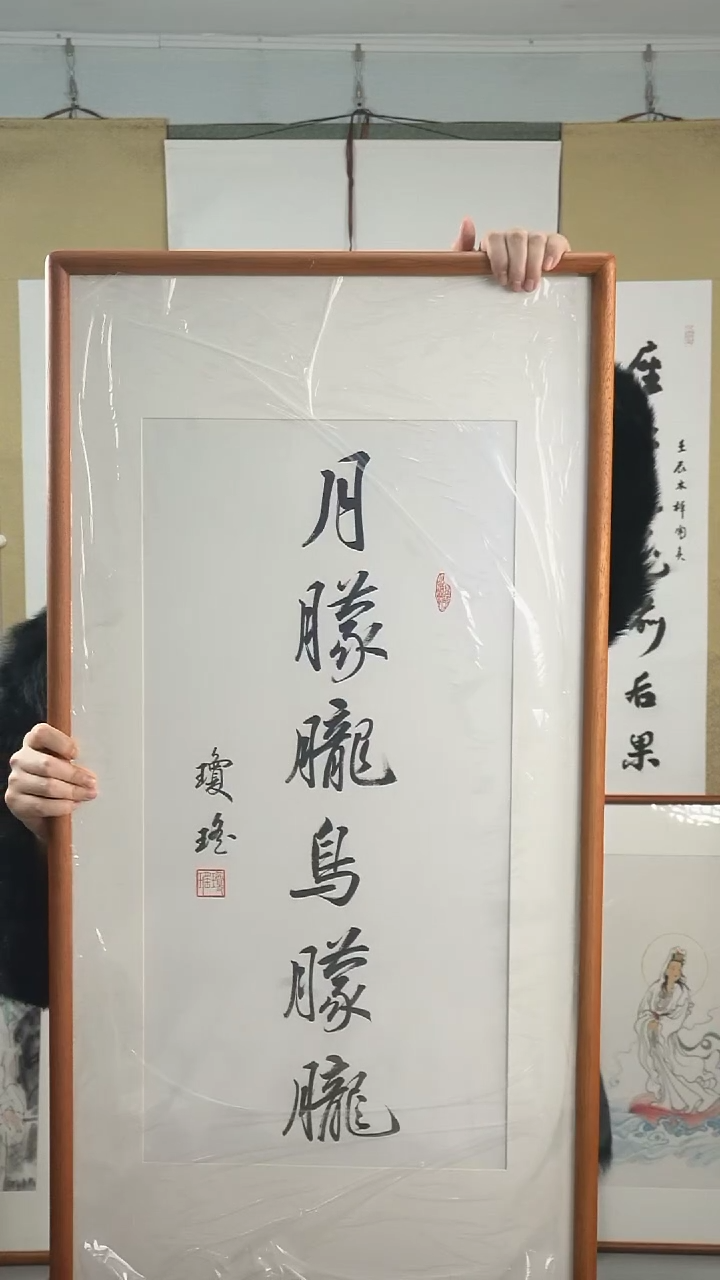 月朦朧鳥朦朧
瓊瑤
前后果